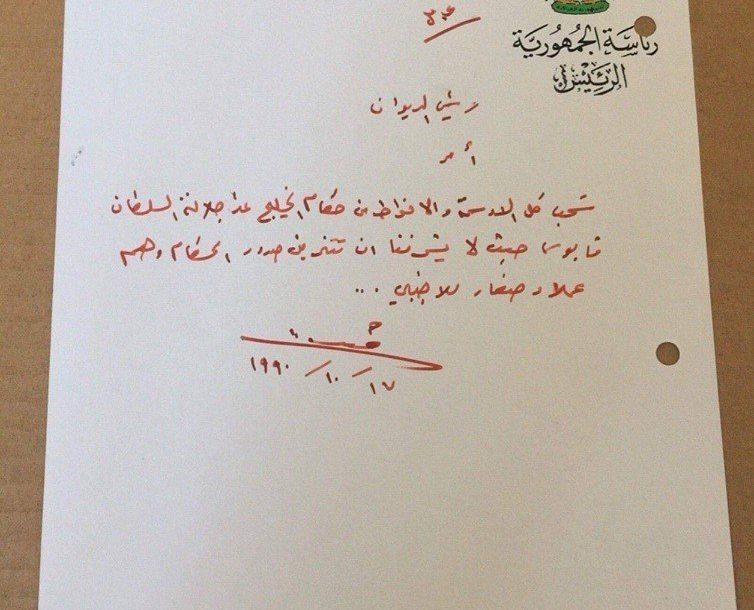 رئاسة الجمهورية
الرئيس
رئيس الديوان
أمر
تسحب كل الاوسمة والانواط من حكام الخليج عدا جلالة السلطان
قابوس حيث لا يشرفنا ان تتزين صدور الحكام وهم
عملاء صغار للاجنبي ...
١٧ / ١٠ / ١٩٩٠